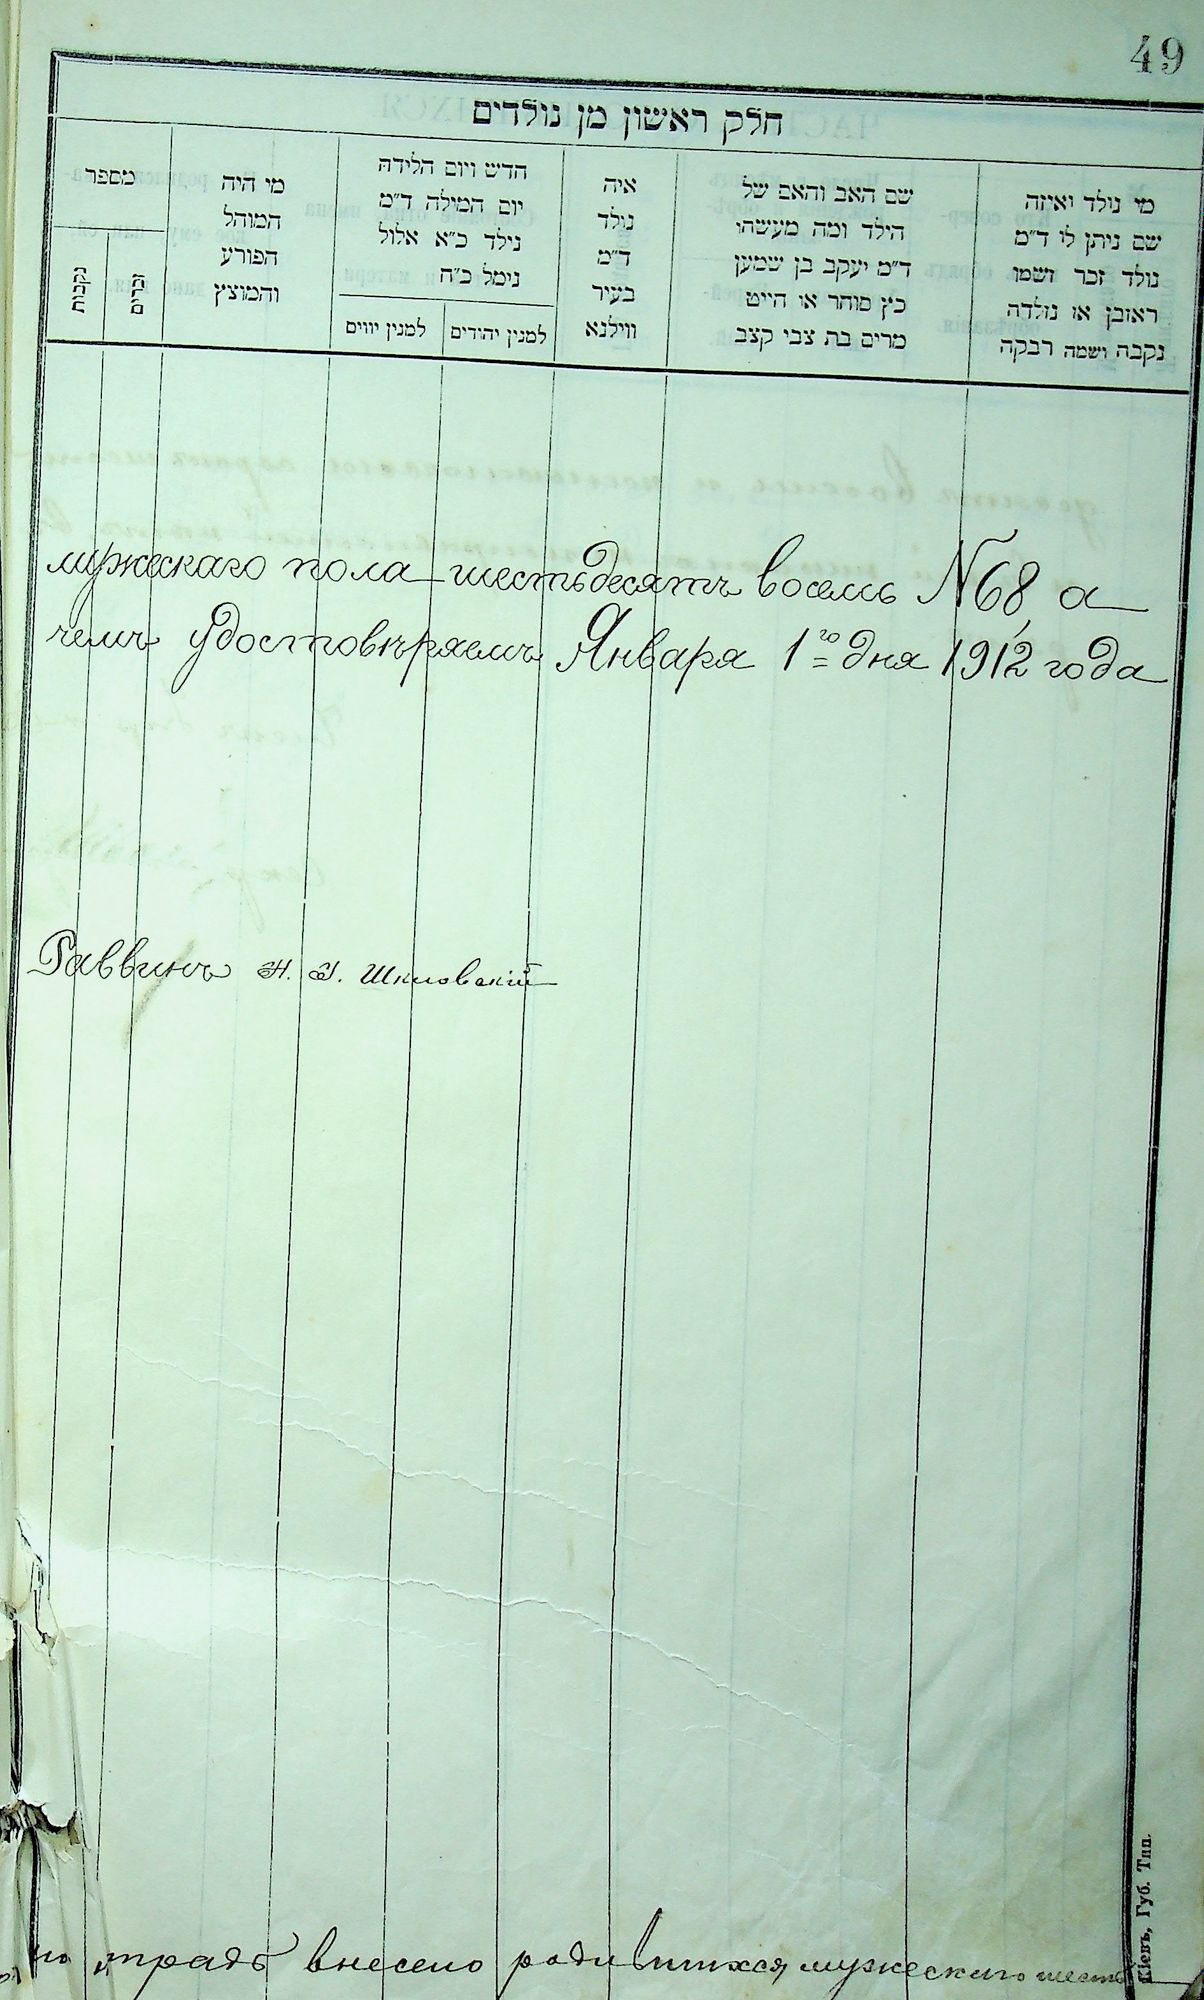 49
חלק ראשון מן נולדים
מי נולד ואיזה
שם ניתן לו ד"מ
נולד זכר ושמו
ראובן או נולדה
נקבה ושמה רבקה
שם האב והאם של
הילד ומה מעשהו
ד"מ יעקב בן שמעון
כץ סוחר או חייט
מרים בת צבי קצב
איה
נולד
ד"מ
בעיר
ווילנא
חדש ויום הלידה
יום המילה ד"מ
נילד כ"א אלול
נימל כ"ח
למנין יהודים
למנין יוונים
מי היה
המוהל
הפורע
והמוצץ
מספר
זכרים
נקבות
мужескаго пола шестьдесятъ восемь №68, а
чемъ удостовѣряемъ Января 1го дня 1912 года
Раввинъ Н. Я. Шкловскій
традѣ внесено родившихся мужескаго шесть
Кіевъ, Губ. Тип.